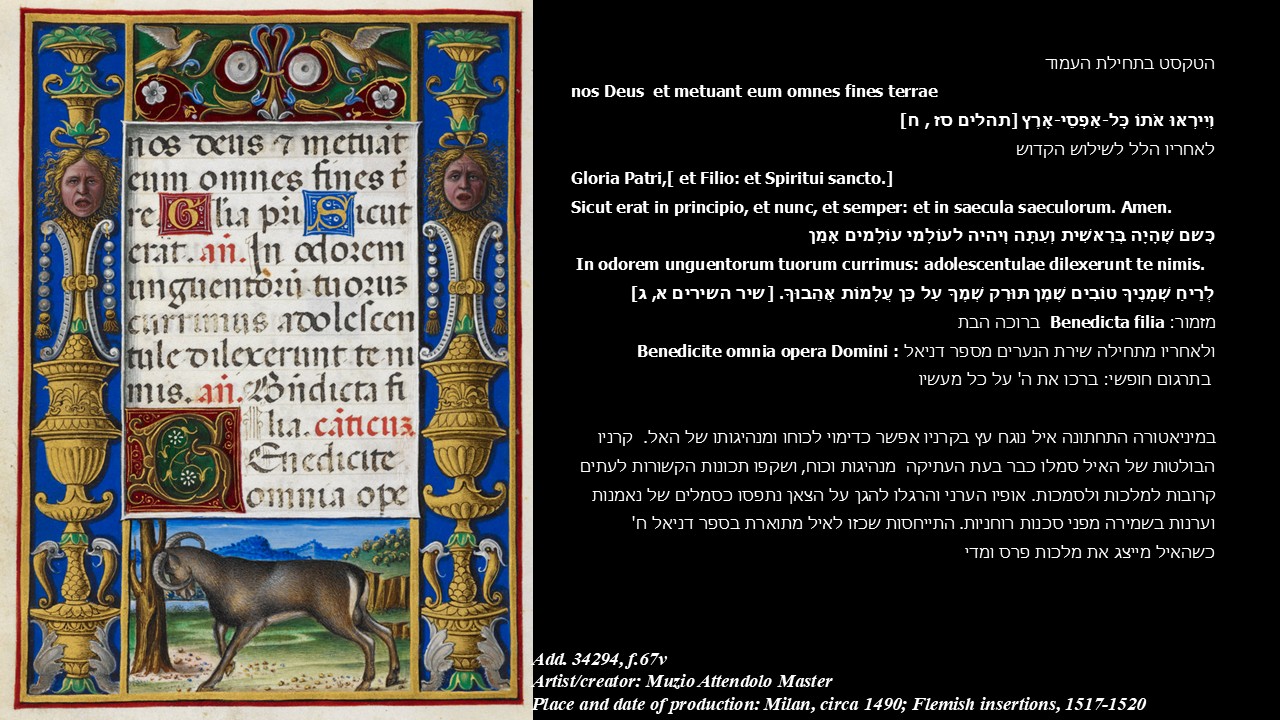 nos deus ⁊ metuāt
eum omnes fines t̄
re. Glia pr̄i Sicut
erāt. an̄. In odorem
unguentorū tuorūz
currimus adolescen
tule dilexerunt te ni
mis. an̄. Bn̄dicta fi
lia. cāticuz
Enedicite
omnia ope
הטקסט בתחילת העמוד
nos Deus et metuant eum omnes fines terrae
וְיִירְאוּ אֹתוֹ כָּל-אַפְסֵי-אָרֶץ [תהלים סז , ח]
לאחריו הלל לשילוש הקדוש
Gloria Patri,[ et Filio: et Spiritui sancto.]
Sicut erat in principio, et nunc, et semper: et in saecula saeculorum. Amen.
כְּשם שֶׁהָיָה בְּרֵאשִׁית וְעַתָּה ויהיה לעוֹלָמי עוֹלָמים אָמֵן
In odorem unguentorum tuorum currimus: adolescentulae dilexerunt te nimis.
לְרֵיחַ שְׁמָנֶיךָ טוֹבִים שֶׁמֶן תּוּרַק שְׁמֶךָ עַל כֵּן עֲלָמוֹת אֲהֵבוּךָ. [שיר השירים א, ג]
מזמור: Benedicta filia ברוכה הבת
ולאחריו מתחילה שירת הנערים מספר דניאל : Benedicite omnia opera Domini
בתרגום חופשי: ברכו את ה' על כל מעשיו
במיניאטורה התחתונה איל נוגח עץ בקרניו אפשר כדימוי לכוחו ומנהיגותו של האל. קרניו
הבולטות של האיל סמלו כבר בעת העתיקה מנהיגות וכוח, ושקפו תכונות הקשורות לעתים
קרובות למלכות ולסמכות. אופיו הערני והרגלו להגן על הצאן נתפסו כסמלים של נאמנות
וערנות בשמירה מפני סכנות רוחניות. התייחסות שכזו לאיל מתוארת בספר דניאל ח'
כשהאיל מייצג את מלכות פרס ומדי
Add. 34294, f.67v
Artist/creator: Muzio Attendolo Master
Place and date of production: Milan, circa 1490; Flemish insertions, 1517-1520